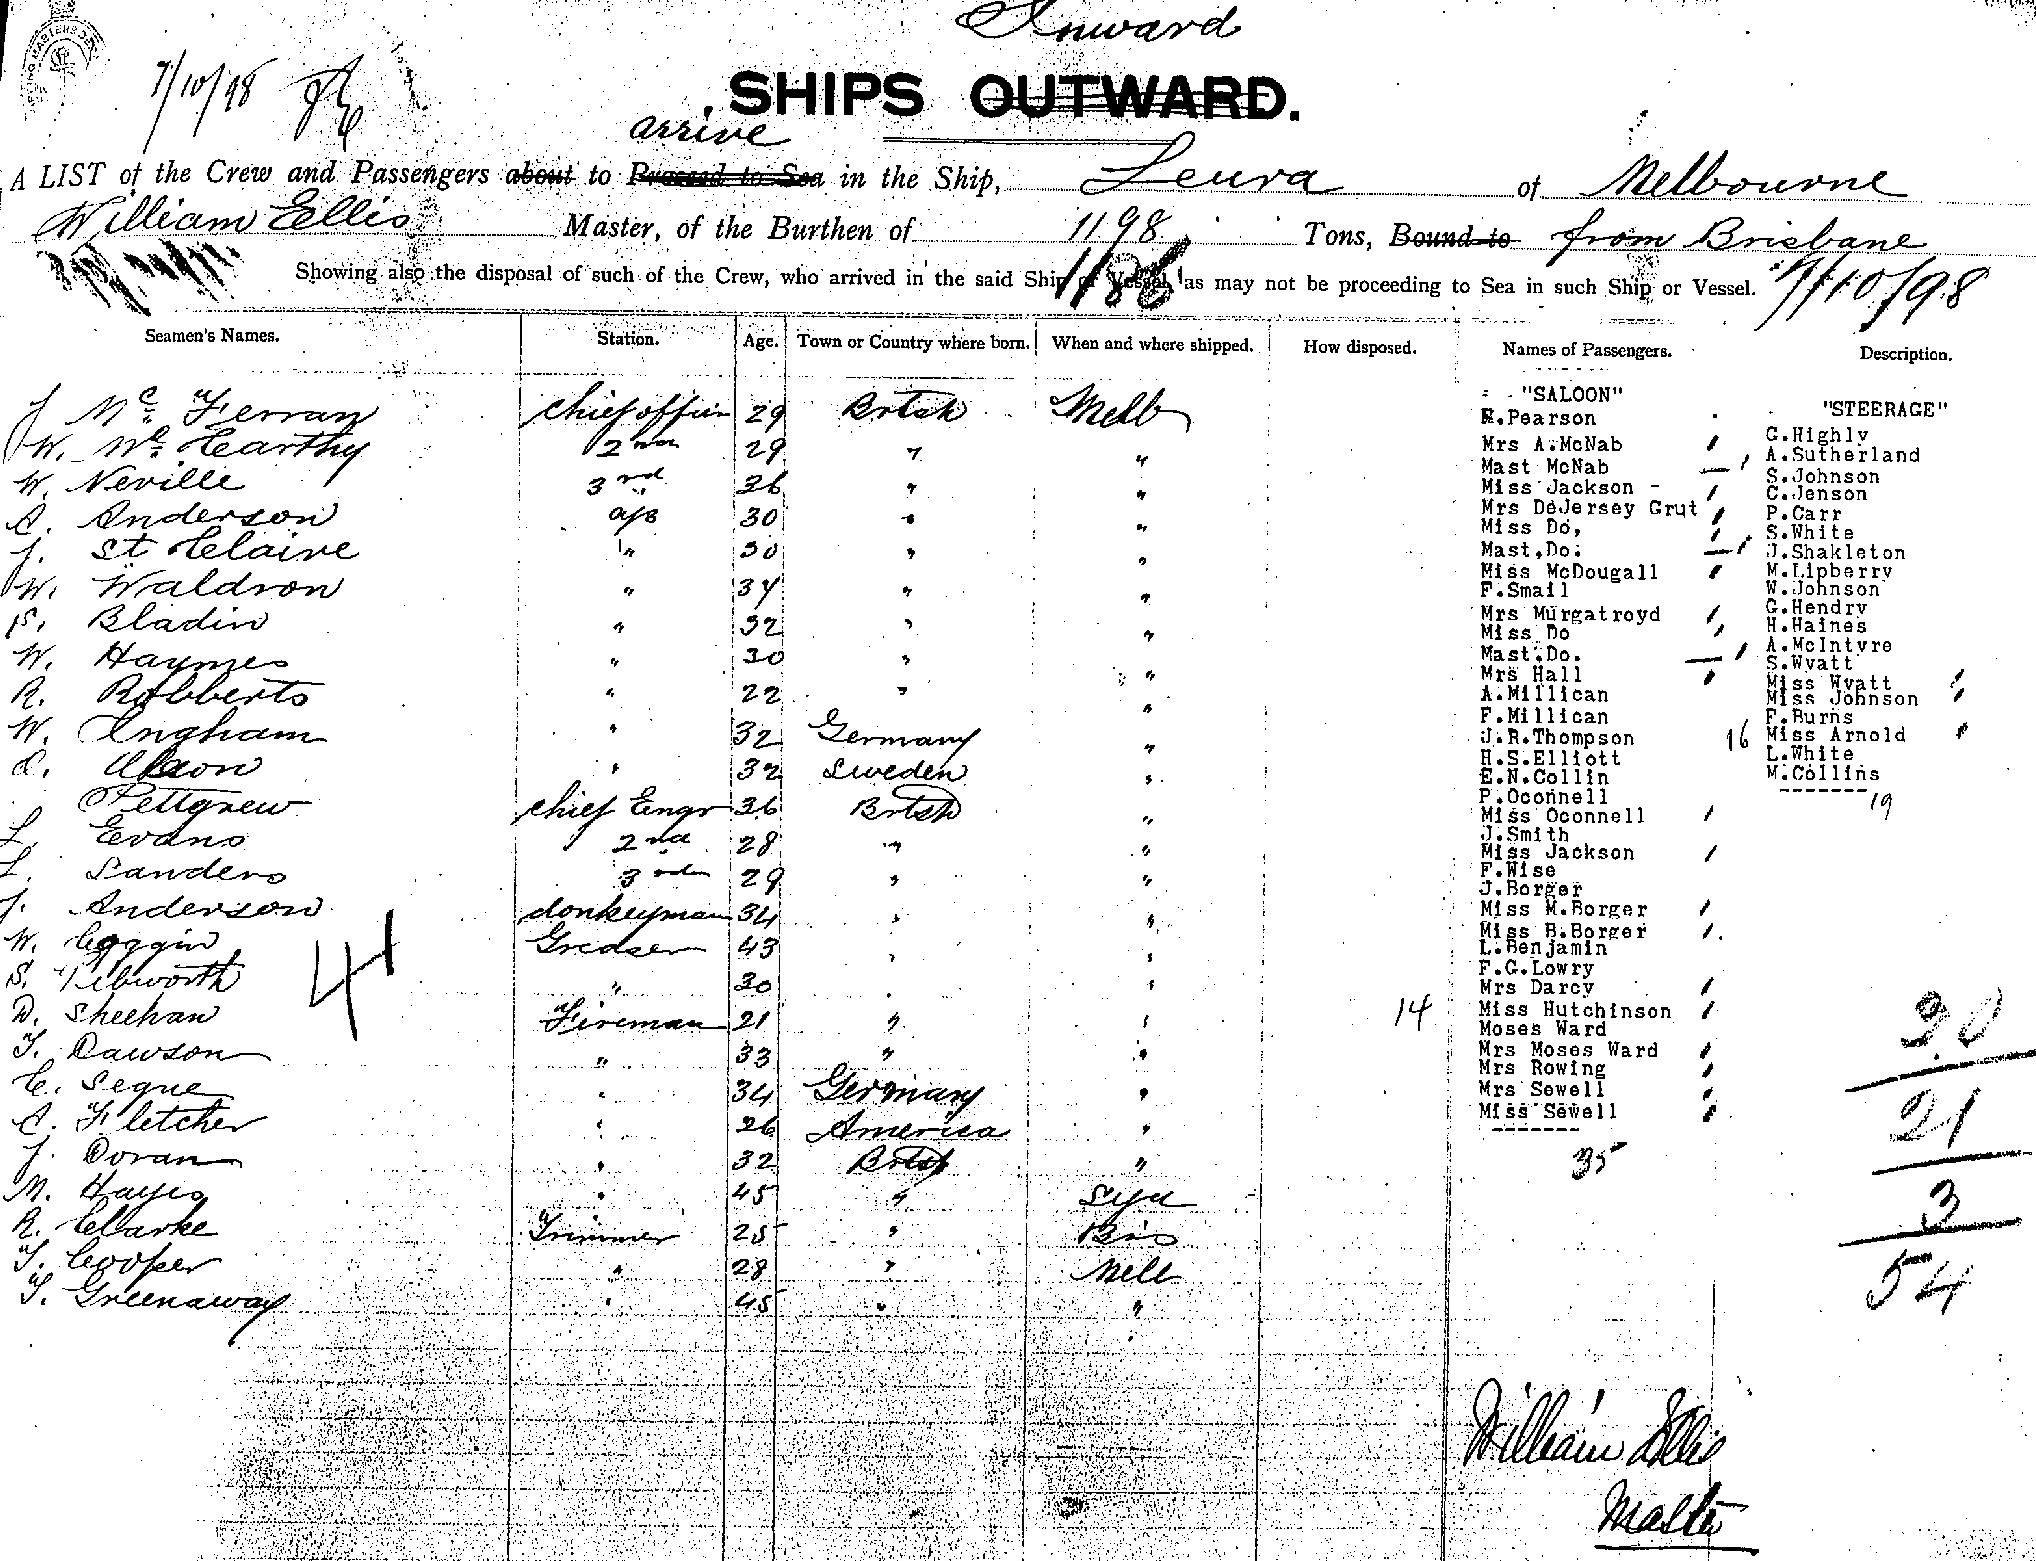 Inward
7/10/98
SHIPS OUTWARD.
arrive
A LIST of the Crew and Passengers about to Proceed to Sea in the Ship, Leura of Melbourne
William Ellis Master, of the Burthen of 1198 Tons, Bound to from Brisbane
1186 7/10/98
Showing also the disposal of such of the Crew, who arrived in the said Ship or Vessel, as may not be proceeding to Sea in such Ship or Vessel.
Seamen's Names. Station. Age. Town or Country where born. When and where shipped. How disposed. Names of Passengers. Description.
J Mc Ferran chief officer 29 Brtsh Melb
W. Mc Carthy 2nd 29 " "
W. Neville 3rd 36 " "
A. Anderson a/s 30 " "
J. St Claire " 30 " "
W. Waldron " 34 " "
P. Bladin " 32 " "
W. Haymes " 30 " "
R. Robberts " 22 " "
W. Ingham " 32 Germany "
O. " 32 Sweden "
Pettgrew chief Engr 36 Brtsh "
L. Evans 2nd 28 " "
L. Sanders 3rd 29 " "
J. Anderson donkeyman 34 " "
W. Coggin Greaser 43 " "
S. Tibworth " 30 " "
D. Sheehan Fireman 21 " "
T. Dawson " 33 " "
C. Segue " 34 Germany "
A. Fletcher " 26 America "
J. Doran " 32 Brtsh "
M. Hayes " 45 " Syd
R. Clarke Trimmer 25 " Bris
T. Cooper " 28 " Melb
T. Greenaway " 45 " "
41
"SALOON"
E.Pearson
Mrs A.McNab
Mast McNab
Miss Jackson
Mrs DeJersey Grut
Miss Do,
Mast,Do.
Miss McDougall
F.Smail
Mrs Murgatroyd
Miss Do
Mast.Do.
Mrs Hall
A.Millican
F.Millican
J.R.Thompson
H.S.Elliott
E.N.Collin
P.Oconnell
Miss Oconnell
J.Smith
Miss Jackson
F.Wise
J.Borger
Miss M.Borger
Miss B.Borger
L.Benjamin
F.G.Lowry
Mrs Darcy
14 Miss Hutchinson
Moses Ward
Mrs Moses Ward
Mrs Rowing
Mrs Sewell
Miss Sewell
-------
35
"STEERAGE"
C.Highly
A.Sutherland
S.Johnson
C.Jenson
P.Carr
S.White
J.Shakleton
M.Lipberry
W.Johnson
G.Hendry
H.Haines
A.McIntyre
S.Wyatt
Miss Wyatt
Miss Johnson
F.Burns
16 Miss Arnold
L.White
M.Collins
-------
19
30
21
3
54
William Ellis
Master